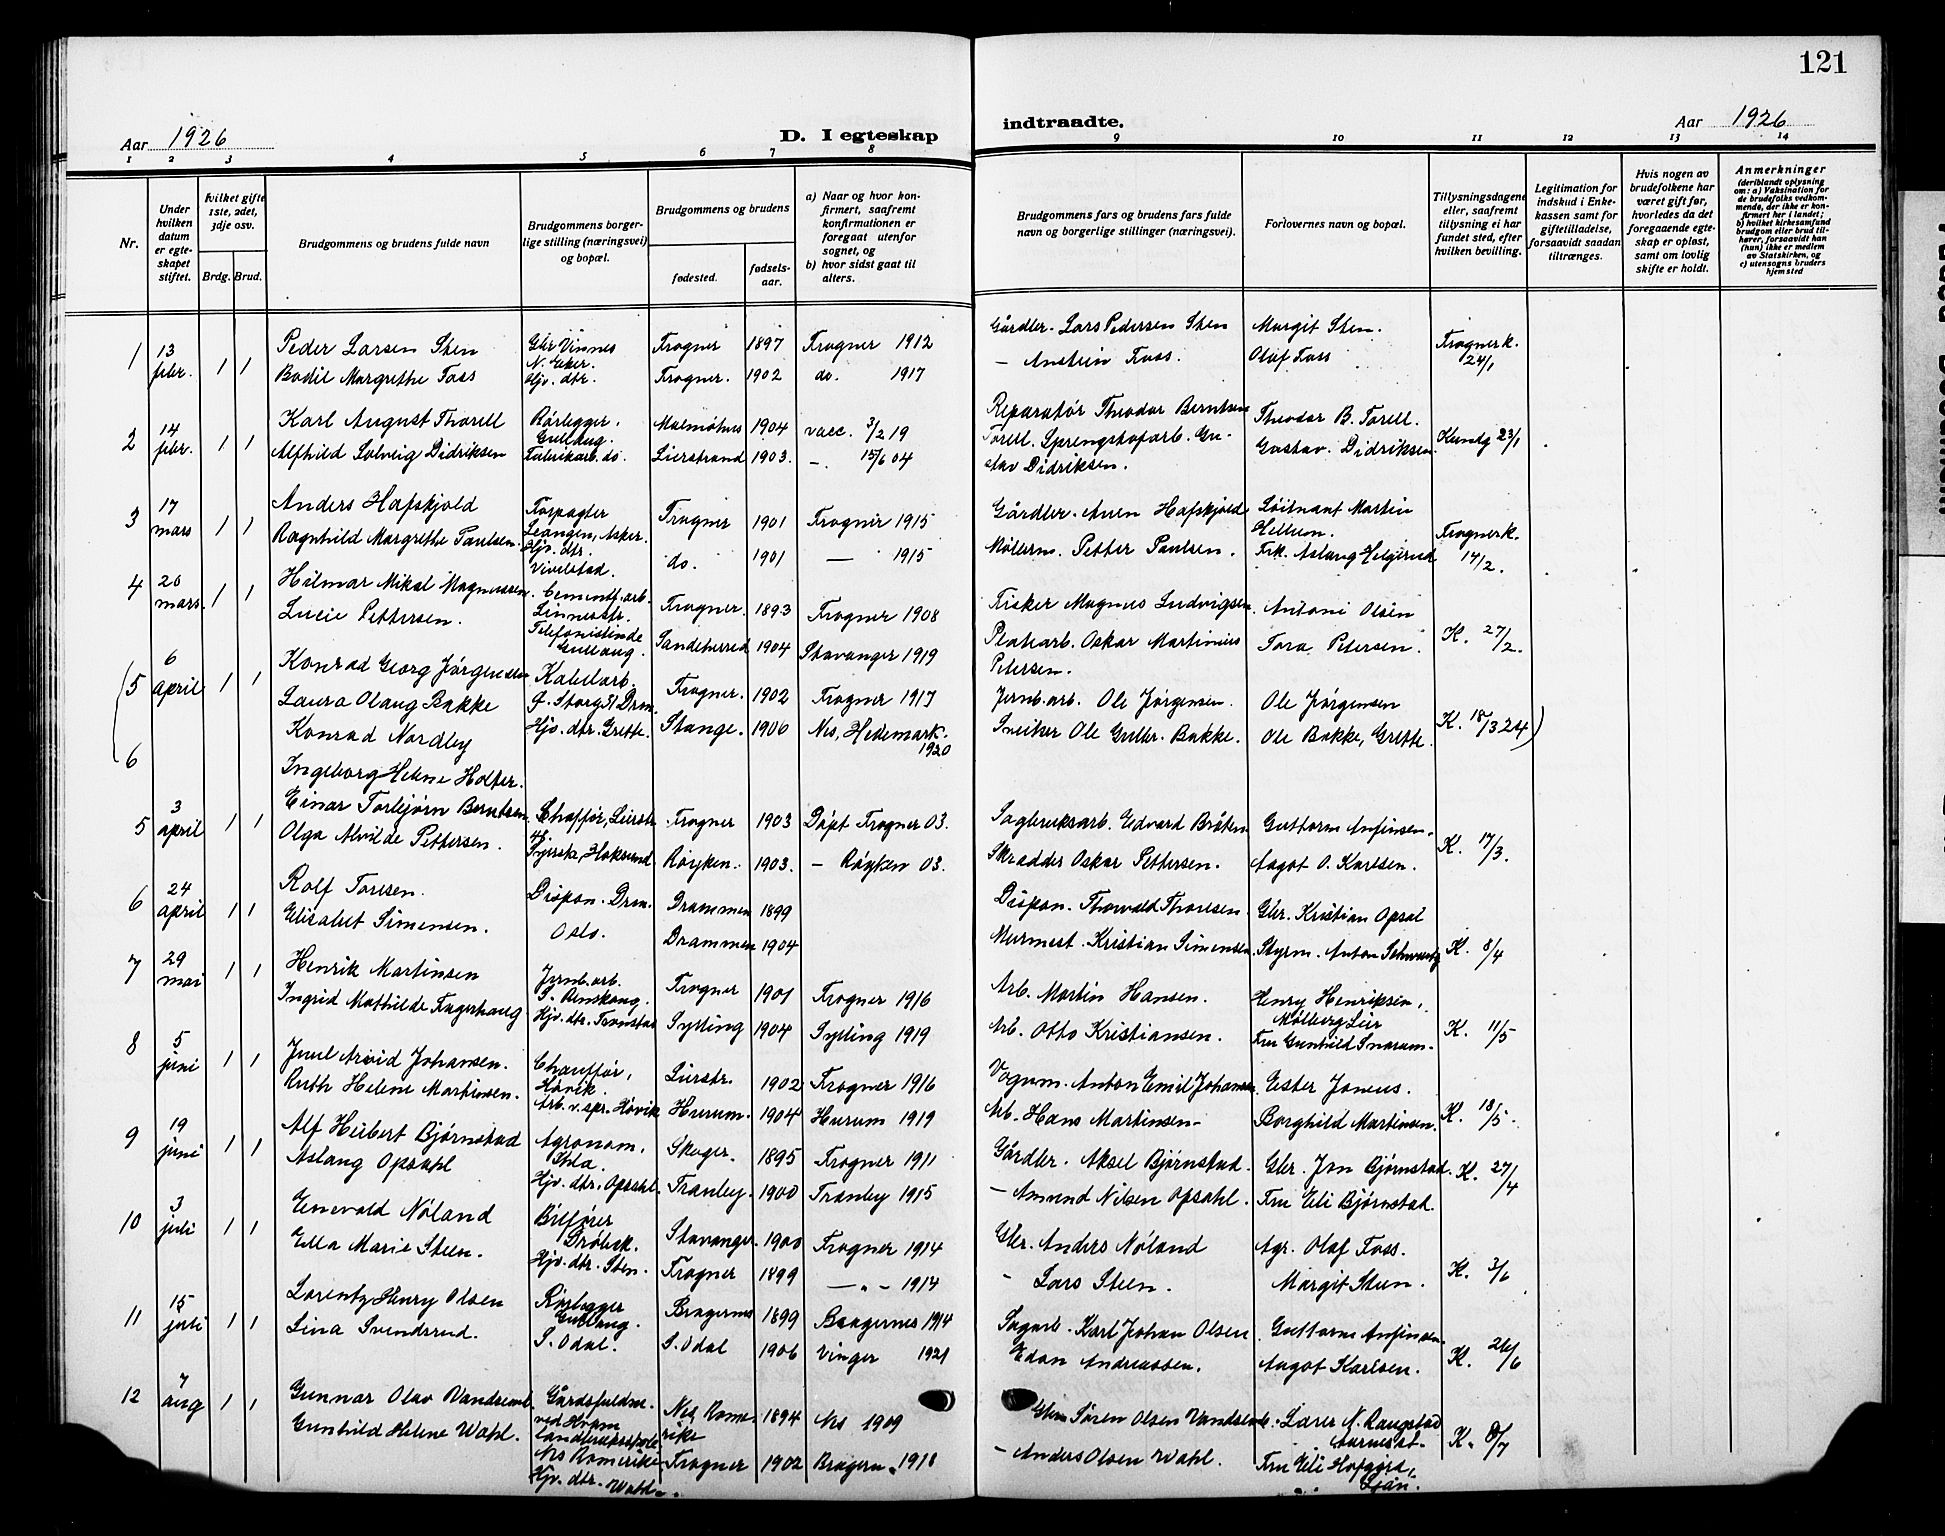 121
Aar 1926
D. I egteskap
indtraadte.
Aar 1926
1 2 3 4 5 6 7 8 9 10 11 12 13 14
Nr.
Under hvilken datum er egteskapet stiftet.
hvilket gifte 1ste, 2det, 3dje osv.
Brdg. Brud.
Brudgommens og brudens fulde navn
Brudgommens borgerlige stilling (næringsvei) og bopæl.
Brudgommens og brudens
fødested.
fødselsaar.
a) Naar og hvor konfirmert, saafremt konfirmationen er foregaat utenfor sognet, og
b) hvor sidst gaat til alters.
Brudgommens fars og brudens fars fulde navn og borgerlige stillinger (næringsvei).
Forlovernes navn og bopæl.
Tillysningsdagene eller, saafremt tillysning ei har fundet sted, efter hvilken bevilling.
Legitimation for indskud i Enkekassen samt for giftetilladelse, forsaavidt saadan tiltrænges.
Hvis nogen av brudefolkene har været gift før, hvorledes da det foregaaende egteskap er opløst, samt om lovlig skifte er holdt.
Anmerkninger
(deriblandt oplysning om: a) Vaksination for de brudefolks vedkommende, der ikke er konfirmert her i landet; b) hvilket kirkesamfund brudgom eller brud tilhører, forsaavidt han (hun) ikke er medlem av Statskirken, og c) utensogns bruders hjemsted
1 13 febr. 1 1 Peder Larsen Sten Gbr Vinnes N. Eker. Frogner 1897 Frogner 1912 Gårdbr. Lars Pedersen Sten Margit Sten. Frogner k. 24/1
Bodil Margrethe Foss Hjv. dtr. Frogner. 1902 do. 1917 — Anstein Foss. Olaf Foss
2 14 febr. 1 1 Karl August Thorell Rørlegger. Gullaug. Malmøhus 1904 vacc. 3/2 19 Reparatør Theodor Berntsen Torell. Theodor B. Torell. Kundg 23/1
Alfhild Solveig Didriksen Fabrikarb. do. Lierstrand 1903. —. 15/6 04 Sprengstofarb. Gustav Didriksen. Gustav. Didriksen.
3 17 mars 1 1 Anders Hafskjold Forpagter Leangen, Asker. Frogner 1901 Frogner 1915 Gårdbr. Aren Hafskjold Løitnant Martin Hellum. Frogner k. 14/2.
Ragnhild Margrethe Paulsen. Hjv. dtr. Vivelstad. do. 1901 — 1915 Møllerm. Petter Paulsen. Frk. Aslaug Helgerud
4 20 mars. 1 1 Hilmar Mikal Magnussen. Cementf. arb. Linnesstr. Frogner. 1893 Frogner 1908 Fisker Magnus Ludvigsen. Antoni Olsen K. 27/2.
Lucie Pettersen. Telefonistinde Gullaug. Sandeherred 1904 Stavanger 1919 Platearb. Oskar Martinius Petersen. Tora. Petersen.
(5 6 april 1 1 Konrad Georg Jørgensen Kabelarb. G. Storg 31 Drm. Frogner. 1902 Frogner 1917 Jernb. arb. Ole Jørgensen. Ole Jørgensen K. 18/3 24)
Laura Olaug Bakke Hjv. dtr. Grette. Stange. 1906 Nes, Hedemark. 1920 Snekker Ole Gulbr. Bakke. Ole Bakke, Grette.
6 Konrad Nordby
Ingeborg Helene Holter.
5 3 april 1 1 Einar Torbjørn Berntsen Chaffør, Lierstr. Frogner 1903 Døpt Frogner 03. Sagbruksarb. Edvard Bråten Guttorm Anfinsen. K. 17/3.
Olga Alvilde Pettersen. Hoksund Røyken. 1903. — Røyken 03. Skrædder Oskar Pettersen. Aagot O. Karlsen.
6 24 april 1 1 Rolf Toresen. Dispon. Drm. Drammen 1899 Dispon. Thorvald Thoresen. Gbr. Kristian Opsal K. 8/4
Elisabet Simensen. Oslo. Drammen 1904 Murmest. Kristian Simensen. Styrm. Anton Schwartz
7 29 mai 1 1 Henrik Martinsen Jernb. arb. Frogner 1901 Frogner 1916 Arb. Martin Hansen. Henry Henriksen, Mølberg Lier K. 11/5
Ingrid Mathilde Fagerhaug Hjv. dtr. Tronstad Sylling 1904 Sylling 1919 Arb. Otto Kristiansen. Fru Gunhild Snarum.
8 5 juni 1 1 Juul Arvid Johansen. Chauffør, Høvik. Lierstr. 1902 Frogner 1916 Vognm. Anton Emil Johansen Ester Joneus. K. 18/5.
Ruth Helene Martinsen. Arb. v. spr. Høvik Hurum. 1904 Hurum 1919 Arb. Hans Martinsen. Borghild Martinsen.
9 19 juni 1 1 Alf Herbert Bjørnstad Agronom, Skoger. 1895 Frogner 1911 Gårdbr. Aksel Bjørnstad. Gbr. Jon Bjørnstad. K. 27/4
Aslaug Opsahl Hjv. dtr. Opsahl. Tranby. 1900 Tranby 1915 — Amund Nilsen Opsahl. Fru Eli Bjørnstad.
10 3 juli 1 1 Enevald Nøland Bilfører Drøbak. Stavanger. 1900 Frogner 1914 Gbr. Anders Nøland Agr. Olaf Foss. K. 3/6
Ella Marie Steen. Hjv. dtr. Sten. Frogner 1899 — „ - 1914 - Lars Steen. Margit Steen.
11 15 juli 1 1 Lorentz Henry Olsen Rørlegger Gullaug. Bragernes 1899 Bragernes 1914 Sagarb. Karl Johan Olsen Guttorm Anfinsen. K. 26/6
Lina Svendsrud. S. Odal. S. Odal 1906 Vinger 1921 Edon Andreassen. Aagot Karlsen.
12 7 aug 1 1 Gunnar Olav Vandsemb. Gårdsfuldm. ved Hvam landbruksskole Nes Romerike Nes Romerike 1894 Nes 1909 Gbr. Søren Olsen Vandsemb. Lærer N. Raugstad Aarnes st. K. 8/7
Gunhild Helene Wahl. Hjv. dtr. Wahl. Frogner 1902 Bragern. 1918 — Anders Olsen Wahl. Fru Eli Hofgård, Ljan.